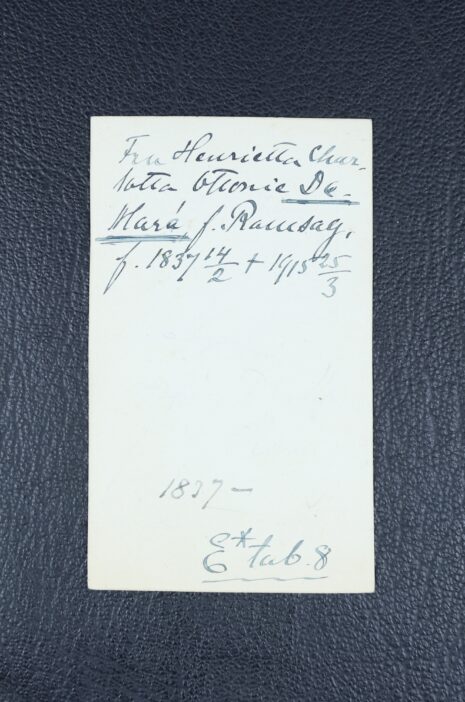 Fru Henrietta Char-
lotta Ottonie De-
Mará, f. Ramsay,
f. 1837 14/2 + 1915 25/3
1837 –
E* tab. 8